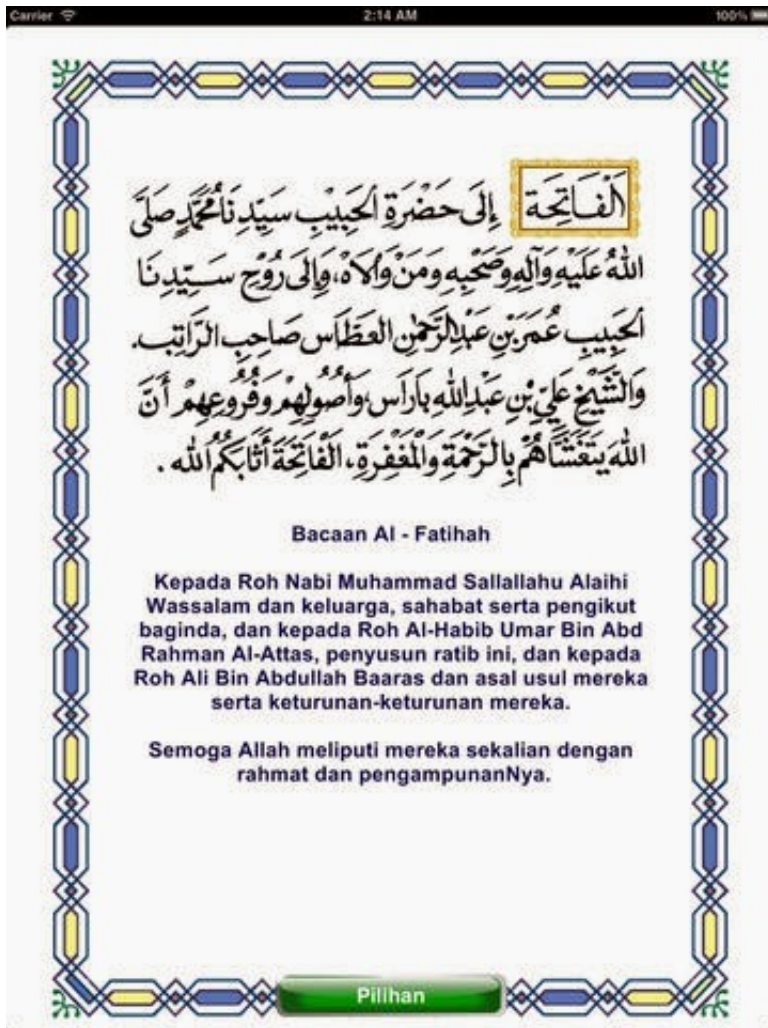 Carrier
2:14 AM
100%
اَلْفَاتِحَة إِلَى حَضْرَةِ الْحَبِيْبِ سَيِّدِنَا مُحَمَّدٍ صَلَّى
اللهُ عَلَيْهِ وَآلِهِ وَصَحْبِهِ وَمَنْ وَالَاهُ، وَإِلَى رُوْحِ سَيِّدِنَا
الْحَبِيبِ عُمَرَ بْنِ عَبْدِالرَّحْمٰنِ العَطَّاس صَاحِبِ الرَّاتِب.
وَالشَّيْخِ عَلِيّ بْنِ عَبْدِاللهِ بَارَاس، وَأُصُولِهِمْ وَفُرُوعِهِمْ أَنَّ
اللهَ يَتَغَشَّاهُمْ بِالرَّحْمَةِ وَالْمَغْفِرَةِ، الْفَاتِحَةَ أَثَابَكُمُ الله.
Bacaan Al - Fatihah
Kepada Roh Nabi Muhammad Sallallahu Alaihi
Wassalam dan keluarga, sahabat serta pengikut
baginda, dan kepada Roh Al-Habib Umar Bin Abd
Rahman Al-Attas, penyusun ratib ini, dan kepada
Roh Ali Bin Abdullah Baaras dan asal usul mereka
serta keturunan-keturunan mereka.
Semoga Allah meliputi mereka sekalian dengan
rahmat dan pengampunanNya.
Pilihan